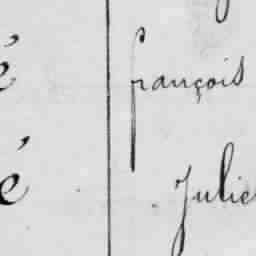 é
françois
é
Julie